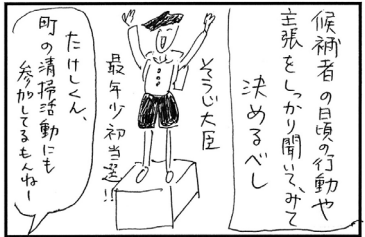 候補者の日頃の行動や
主張をしっかり聞いて、みて
決めるべし
そうじ大臣
最年少初当選!!
たけしくん、
町の清掃活動にも
参加してるもんねー